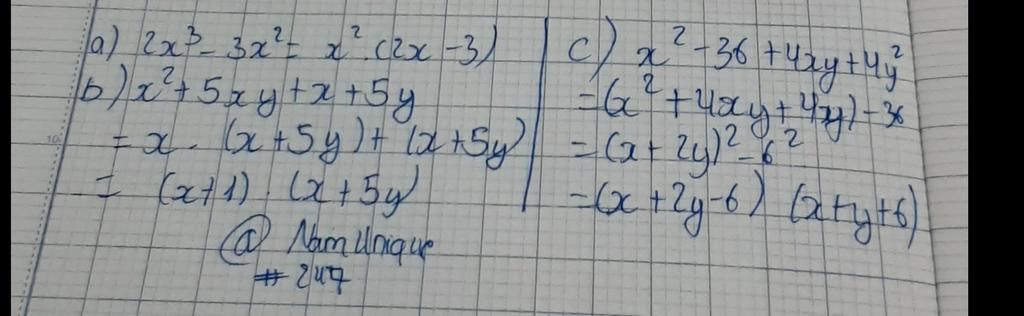 a) 2x³ - 3x² = x² . (2x - 3)
b) x² + 5xy + x + 5y
= x . (x + 5y) + (x + 5y)
= (x + 1) . (x + 5y)
@ NamUnique
# 247
c) x² - 36 + 4xy + 4y²
= (x² + 4xy + 4xy) - 36
= (x + 2y)² - 6²
= (x + 2y - 6) (x + y + 6)